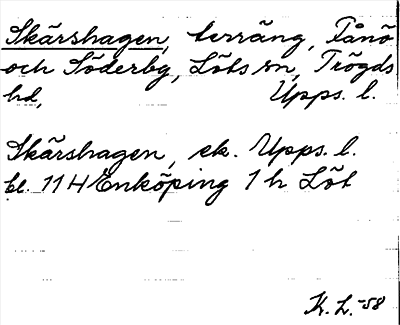 Skärshagen, terräng, Fånö
och Söderby, Löts sn, Trögds
hd, Upps. l.
Skärshagen, ek. Upps. l.
bl. 11 H Enköping 1 h Löt
K. L. -58